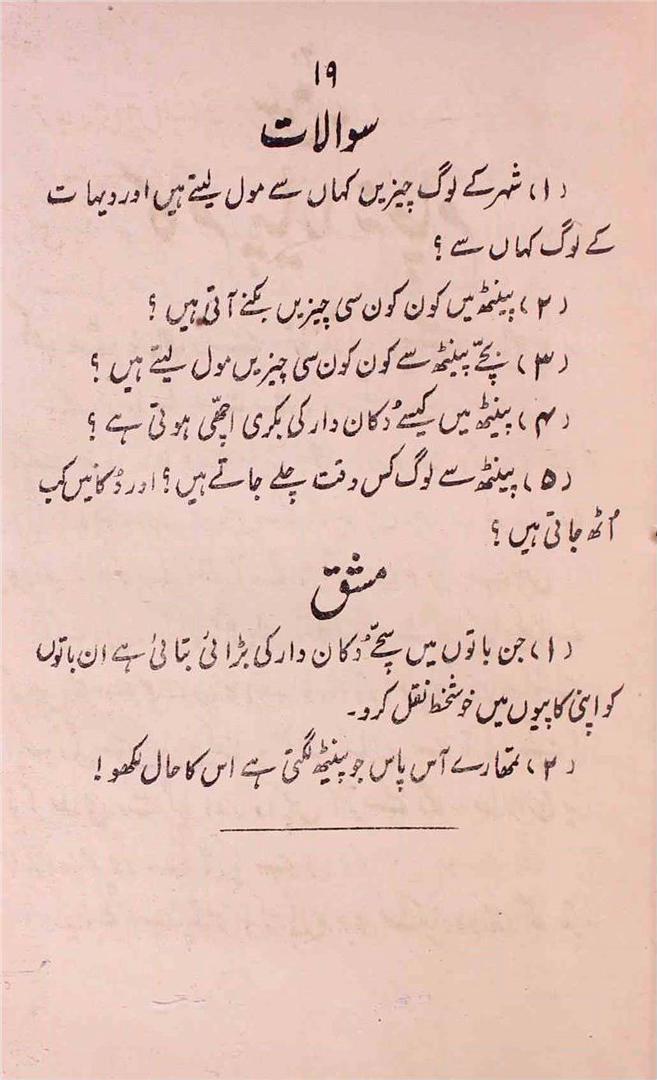 ۱۹
سوالات
(۱) شہر کے لوگ چیزیں کہاں سے مول لیتے ہیں اور دیہات
کے لوگ کہاں سے؟
(۲) پینٹھ میں کون کون سی چیزیں بکنے آتی ہیں؟
(۳) بچّے پینٹھ سے کون کون سی چیزیں مول لیتے ہیں؟
(۴) پینٹھ میں کیسے دُکان دار کی بکری اچھّی ہوتی ہے؟
(۵) پینٹھ سے لوگ کس وقت چلے جاتے ہیں؟ اور دُکانیں کب
اُٹھ جاتی ہیں؟
مشق
(۱) جن باتوں میں سچّے دُکان دار کی بڑائی بتائی ہے ان باتوں
کو اپنی کاپیوں میں خوشخط نقل کرو۔
(۲) تمھارے آس پاس جو پینٹھ لگتی ہے اس کا حال لکھو!